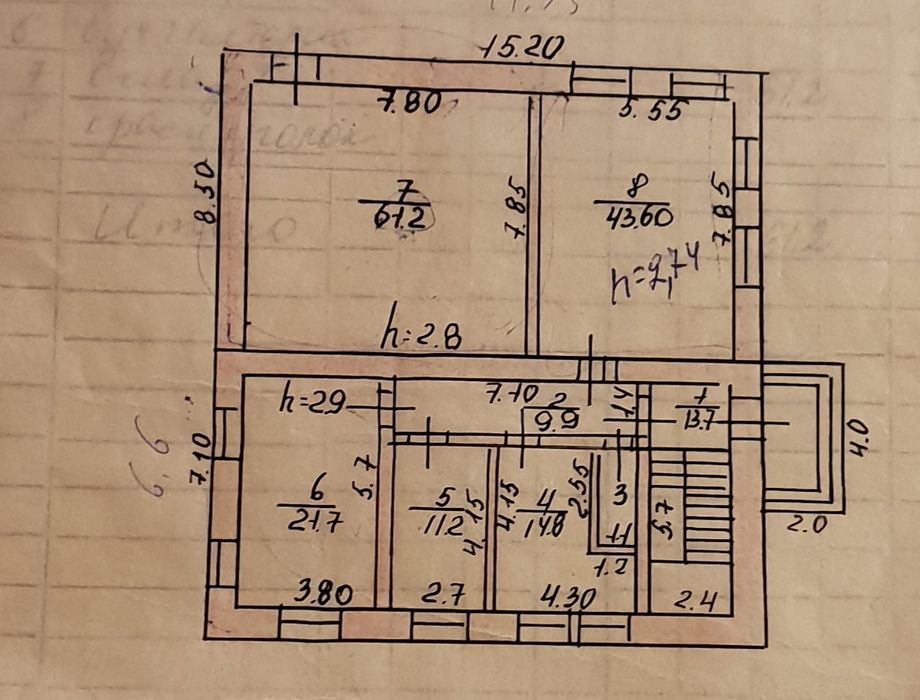 15.20
7.80
5.55
8.50
7
61.2
7.85
8
43.60
7.85
h=2,74
h=2.8
h=2.9
7.10
2
9.9
1.4
1
13.7
4.0
2.0
6,6
7.10
6
21.7
5.7
5
11.2
4.15
4.15
4
14.8
2.55
3
1.1
1.2
5.7
3.80
2.7
4.30
2.4